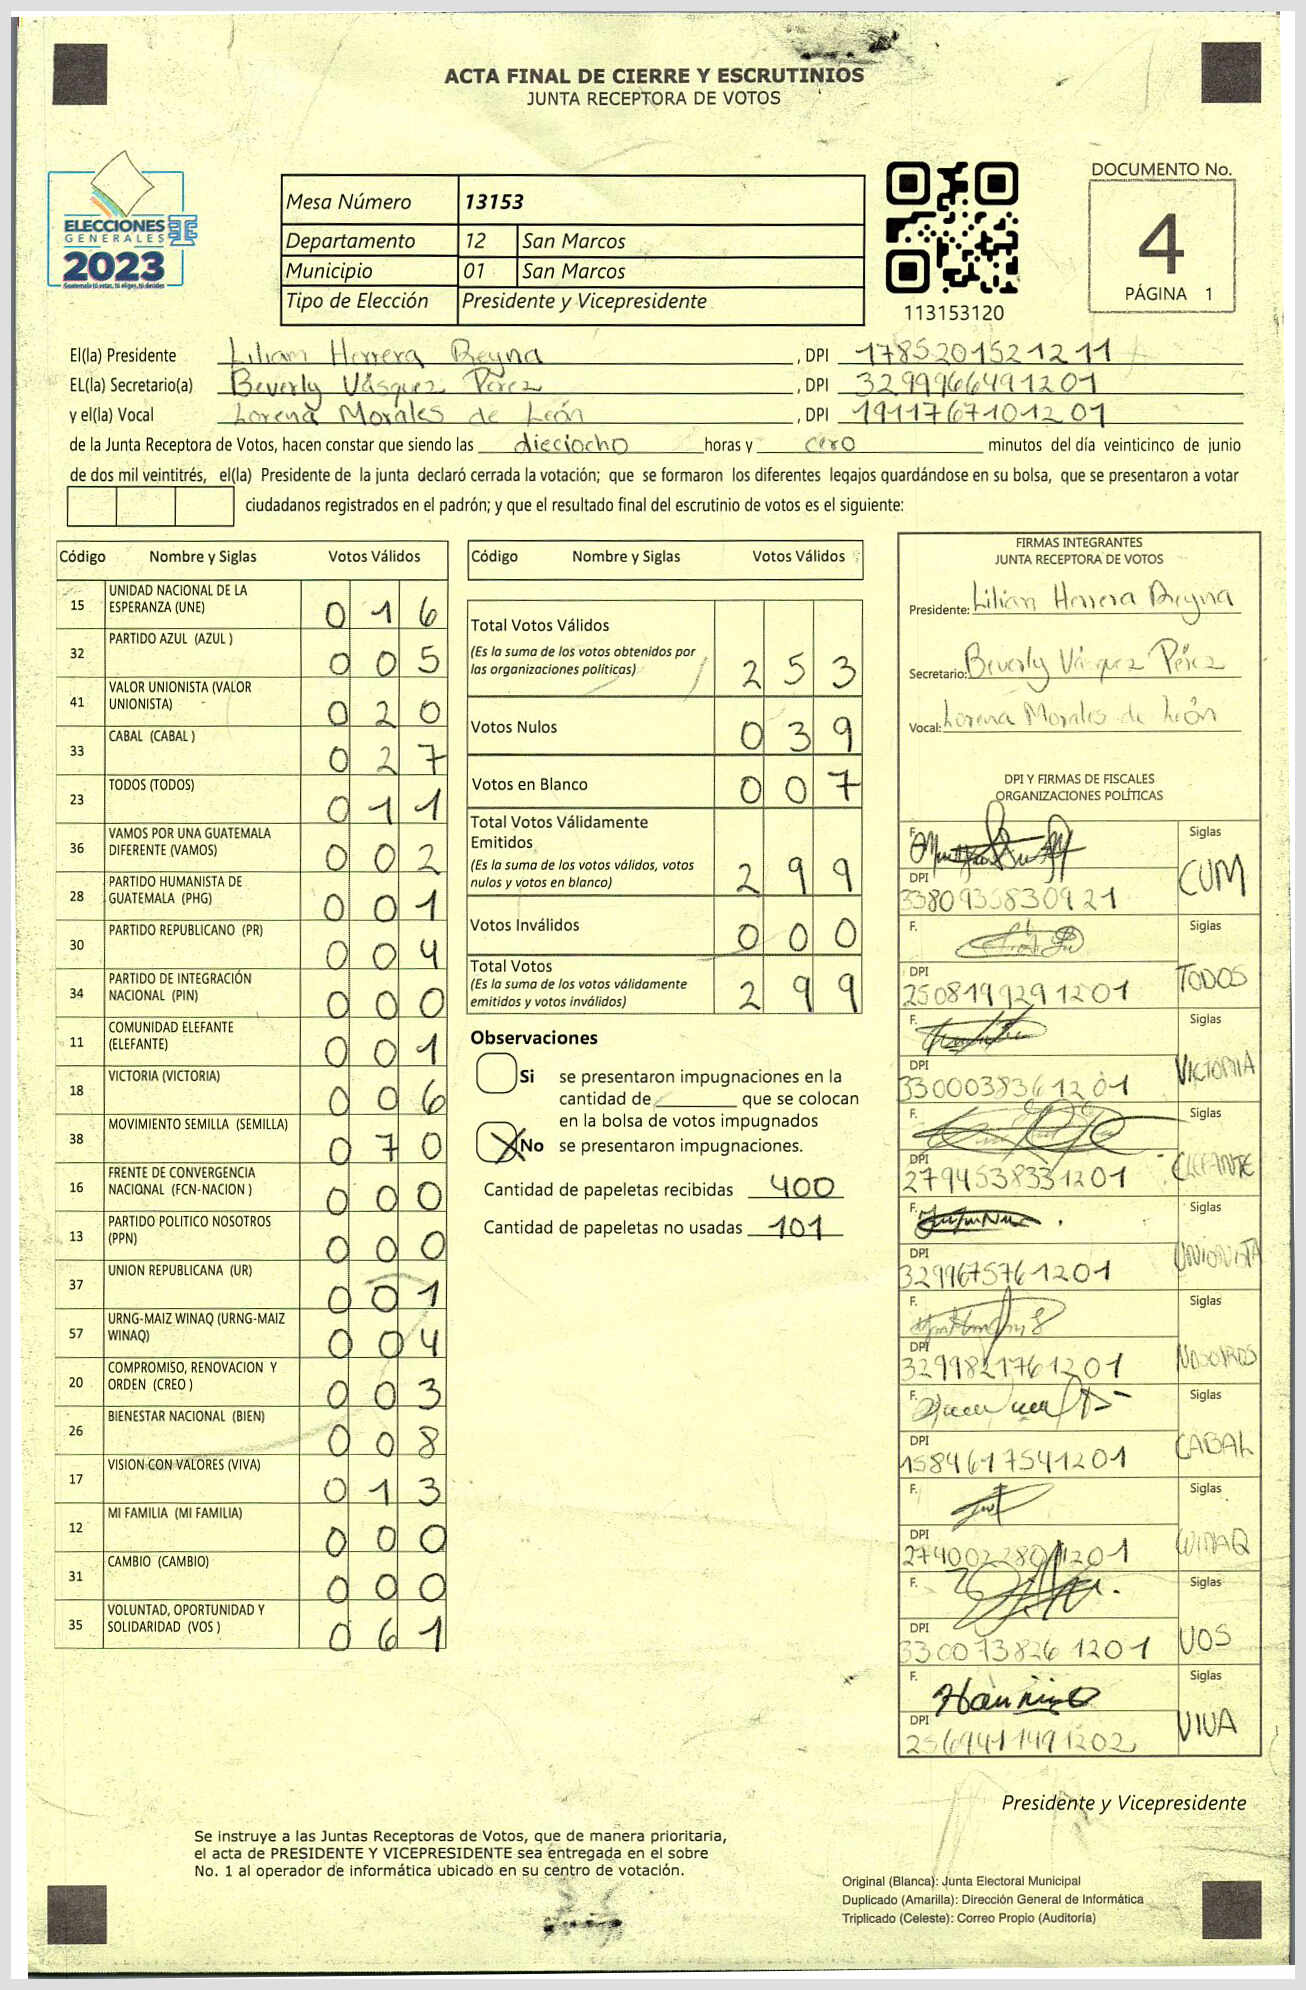 ACTA FINAL DE CIERRE Y ESCRUTINIOS
JUNTA RECEPTORA DE VOTOS
ELECCIONES
GENERALES
2023
Guatemala tú votas, tú eliges, tú decides
Mesa Número 13153
Departamento 12 San Marcos
Municipio 01 San Marcos
Tipo de Elección Presidente y Vicepresidente
113153120
DOCUMENTO No.
4
PÁGINA 1
El(la) Presidente Lilian Herrera Reyna , DPI 1785201521211
EL(la) Secretario(a) Beverly Vásquez Pérez , DPI 3299966491201
y el(la) Vocal Lorena Morales de León , DPI 1911767101201
de la Junta Receptora de Votos, hacen constar que siendo las dieciocho horas y cero minutos del día veinticinco de junio
de dos mil veintitrés, el(la) Presidente de la junta declaró cerrada la votación; que se formaron los diferentes legajos guardándose en su bolsa, que se presentaron a votar
ciudadanos registrados en el padrón; y que el resultado final del escrutinio de votos es el siguiente:
Código Nombre y Siglas Votos Válidos
15 UNIDAD NACIONAL DE LA ESPERANZA (UNE) 0 1 6
32 PARTIDO AZUL (AZUL ) 0 0 5
41 VALOR UNIONISTA (VALOR UNIONISTA) 0 2 0
33 CABAL (CABAL ) 0 2 7
23 TODOS (TODOS) 0 1 1
36 VAMOS POR UNA GUATEMALA DIFERENTE (VAMOS) 0 0 2
28 PARTIDO HUMANISTA DE GUATEMALA (PHG) 0 0 1
30 PARTIDO REPUBLICANO (PR) 0 0 4
34 PARTIDO DE INTEGRACIÓN NACIONAL (PIN) 0 0 0
11 COMUNIDAD ELEFANTE (ELEFANTE) 0 0 1
18 VICTORIA (VICTORIA) 0 0 6
38 MOVIMIENTO SEMILLA (SEMILLA) 0 7 0
16 FRENTE DE CONVERGENCIA NACIONAL (FCN-NACION ) 0 0 0
13 PARTIDO POLITICO NOSOTROS (PPN) 0 0 0
37 UNION REPUBLICANA (UR) 0 0 1
57 URNG-MAIZ WINAQ (URNG-MAIZ WINAQ) 0 0 4
20 COMPROMISO, RENOVACION Y ORDEN (CREO ) 0 0 3
26 BIENESTAR NACIONAL (BIEN) 0 0 8
17 VISION CON VALORES (VIVA) 0 1 3
12 MI FAMILIA (MI FAMILIA) 0 0 0
31 CAMBIO (CAMBIO) 0 0 0
35 VOLUNTAD, OPORTUNIDAD Y SOLIDARIDAD (VOS ) 0 6 1
Código Nombre y Siglas Votos Válidos
Total Votos Válidos
(Es la suma de los votos obtenidos por
las organizaciones políticas) 2 5 3
Votos Nulos 0 3 9
Votos en Blanco 0 0 7
Total Votos Válidamente
Emitidos
(Es la suma de los votos válidos, votos
nulos y votos en blanco) 2 9 9
Votos Inválidos 0 0 0
Total Votos
(Es la suma de los votos válidamente
emitidos y votos inválidos) 2 9 9
Observaciones
Si se presentaron impugnaciones en la
cantidad de ________ que se colocan
en la bolsa de votos impugnados
X No se presentaron impugnaciones.
Cantidad de papeletas recibidas 400
Cantidad de papeletas no usadas 101
FIRMAS INTEGRANTES
JUNTA RECEPTORA DE VOTOS
Presidente: Lilian Herrera Reyna
Secretario: Beverly Vásquez Pérez
Vocal: Lorena Morales de León
DPI Y FIRMAS DE FISCALES
ORGANIZACIONES POLÍTICAS
F. Siglas
DPI CUM
3380935830921
F. Siglas
DPI TODOS
2508199291201
F. Siglas
DPI VICTORIA
3300038361201
F. Siglas
DPI ELEFANTE
2794538331201
F. Siglas
DPI UNIONISTA
3299675761201
F. Siglas
DPI NOSOTROS
3299821761201
F. Siglas
DPI CABAL
1584617541201
F. Siglas
DPI WINAQ
2740022801201
F. Siglas
DPI VOS
3300738261201
F. Siglas
DPI VIVA
2569411491202
Presidente y Vicepresidente
Se instruye a las Juntas Receptoras de Votos, que de manera prioritaria,
el acta de PRESIDENTE Y VICEPRESIDENTE sea entregada en el sobre
No. 1 al operador de informática ubicado en su centro de votación.
Original (Blanca): Junta Electoral Municipal
Duplicado (Amarilla): Dirección General de Informática
Triplicado (Celeste): Correo Propio (Auditoría)